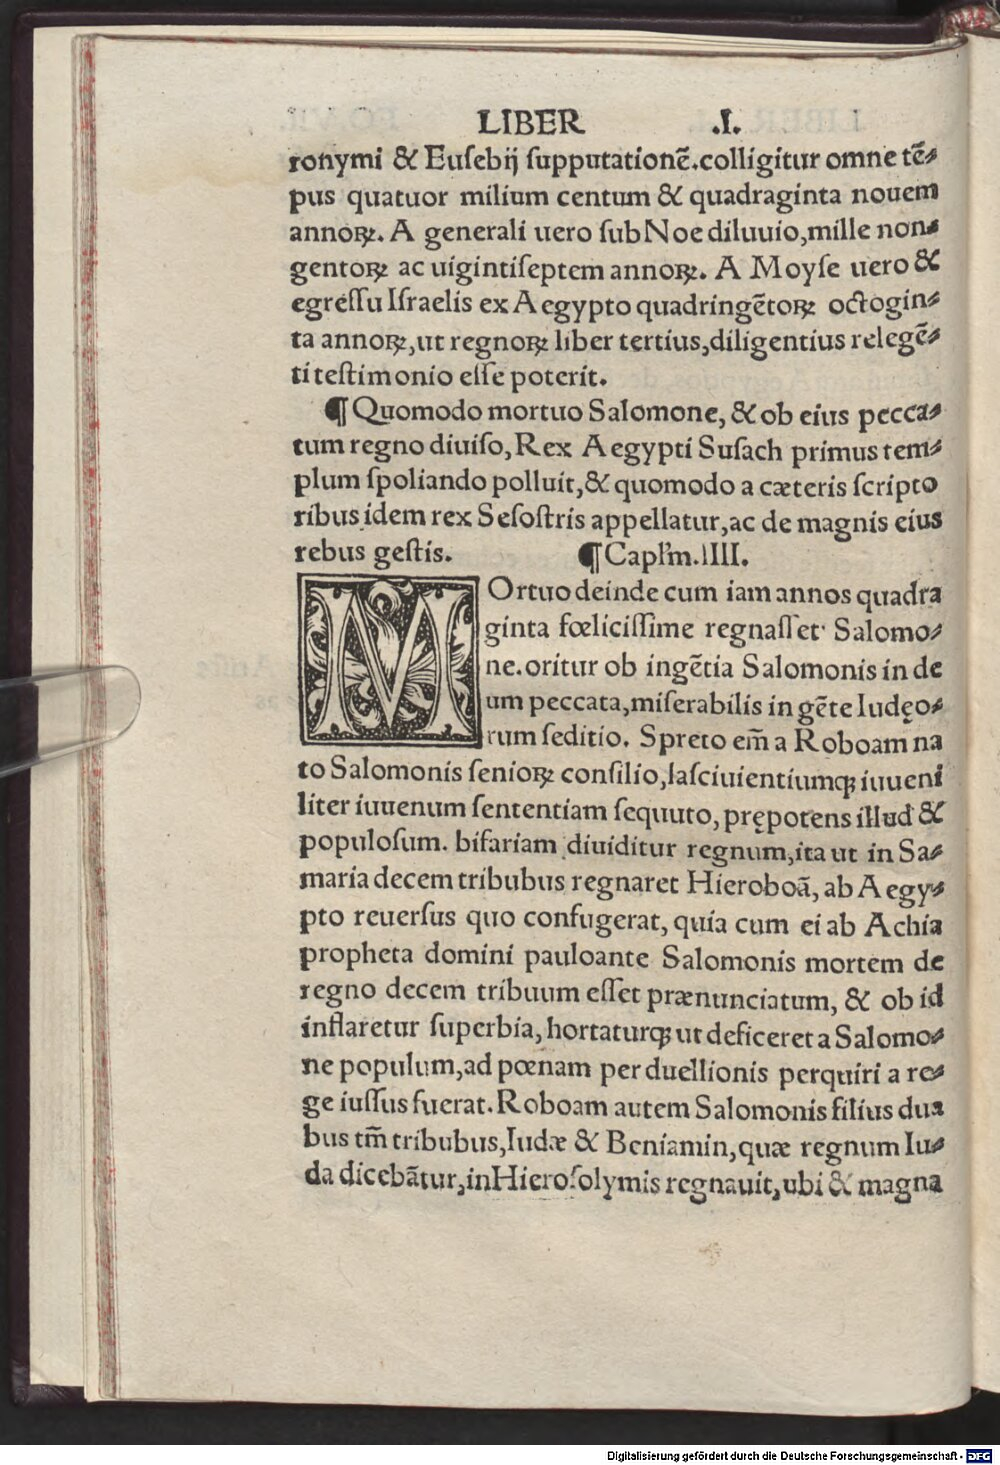 LIBER .I.
ronymi & Euſebij ſupputationē.colligitur omne tē⸗
pus quatuor milium centum & quadraginta nouem
annoꝝ. A generali uero ſub Noe diluuio,mille non⸗
gentoꝝ ac uigintiſeptem annoꝝ. A Moyſe uero &
egreſſu Iſraelis ex Aegypto quadringētoꝝ octogin⸗
ta annoꝝ,ut regnoꝝ liber tertius,diligentius relegē⸗
ti teſtimonio eſſe poterit.
¶ Quomodo mortuo Salomone, & ob eius pecca⸗
tum regno diuiſo, Rex Aegypti Suſach primus tem⸗
plum ſpoliando polluit,& quomodo a cæteris ſcripto
ribus idem rex Seſoſtris appellatur,ac de magnis eius
rebus geſtis. ¶ Capl'm.IIII.
MOrtuo deinde cum iam annos quadra
ginta fœliciſſime regnaſſet Salomo⸗
ne.oritur ob ingētia Salomonis in de
um peccata,miſerabilis in gēte Iudęo⸗
rum ſeditio. Spreto em̄ a Roboam na
to Salomonis ſenioꝝ conſilio,laſciuientiumqꝫ iuueni
liter iuuenum ſententiam ſequuto, prępotens illud &
populoſum. bifariam diuiditur regnum,ita ut in Sa⸗
maria decem tribubus regnaret Hieroboā, ab Aegy⸗
pto reuerſus quo confugerat, quia cum ei ab Achia
propheta domini pauloante Salomonis mortem de
regno decem tribuum eſſet prænunciatum, & ob id
inflaretur ſuperbia, hortaturqꝫ ut deficeret a Salomo⸗
ne populum,ad pœnam perduellionis perquiri a re⸗
ge iuſſus fuerat. Roboam autem Salomonis filius dua
bus tm̄ tribubus,Iudæ & Beniamin,quæ regnum Iu⸗
da dicebātur,in Hieroſolymis regnauit,ubi & magna
Digitalisierung gefördert durch die Deutsche Forschungsgemeinschaft - DFG